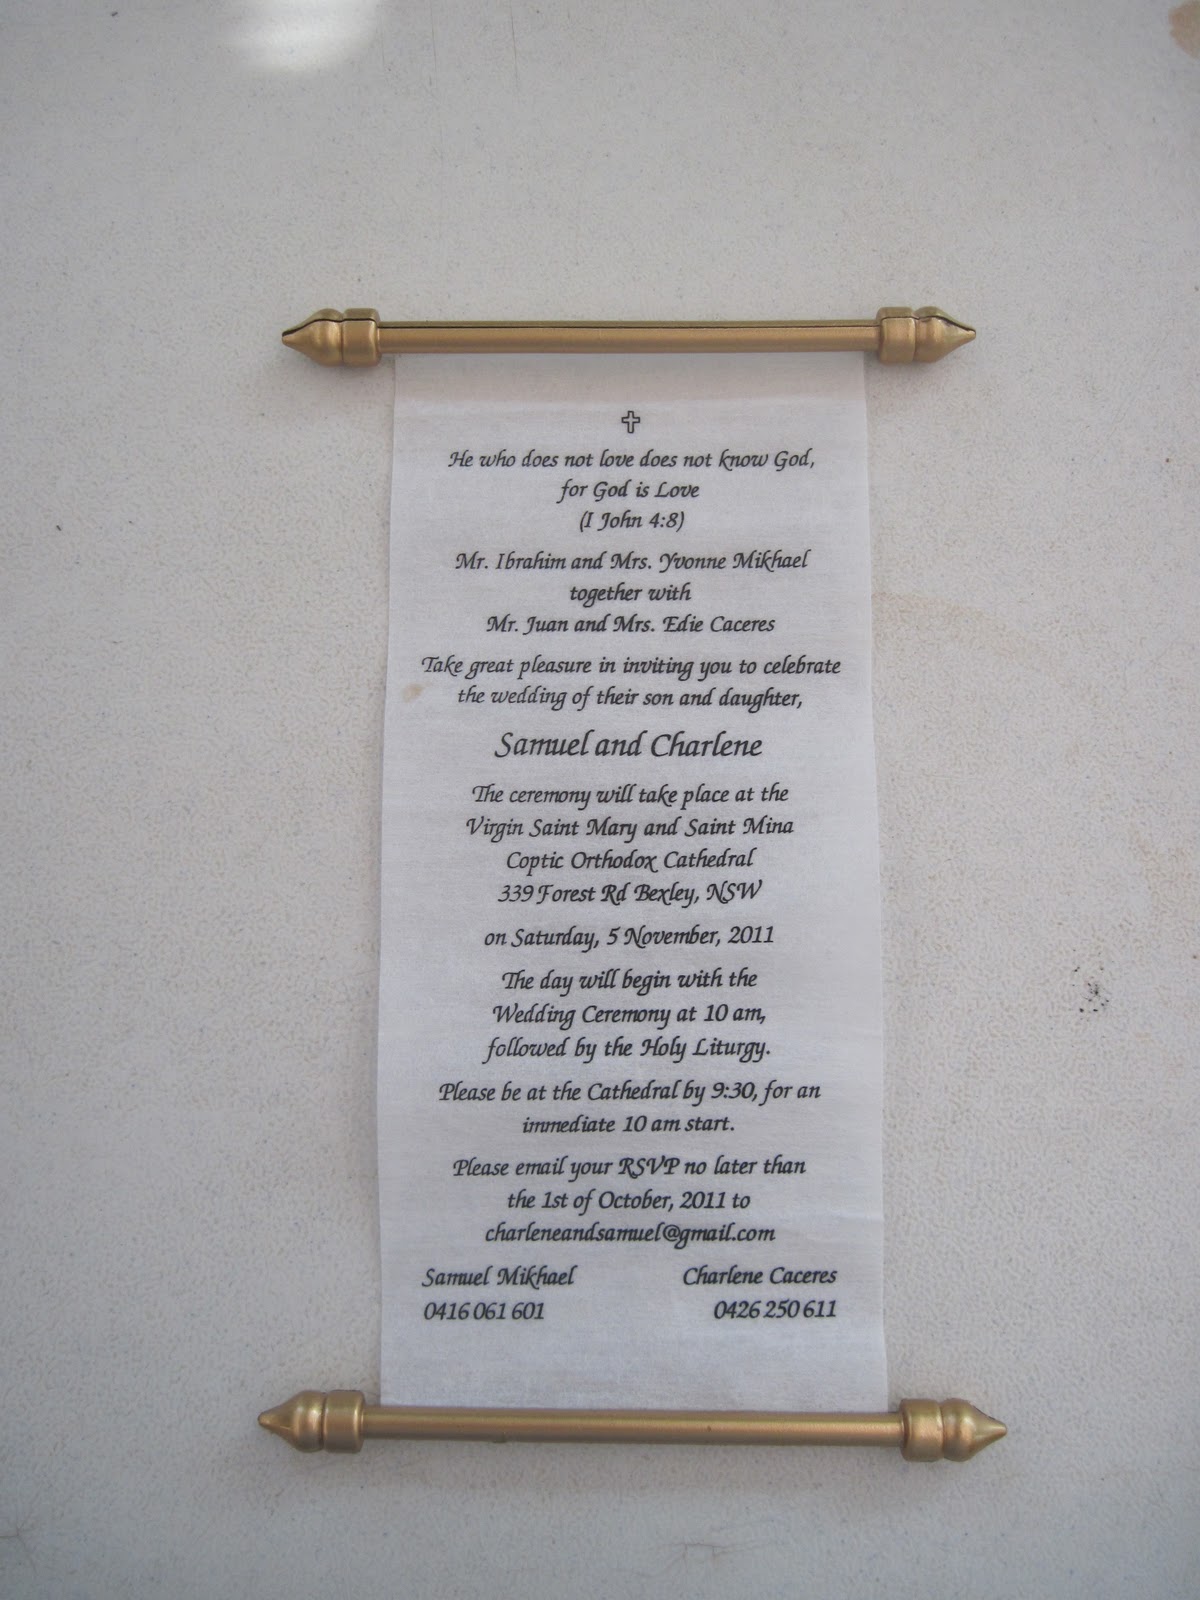 He who does not love does not know God,
for God is Love
(I John 4:8)
Mr. Ibrahim and Mrs. Yvonne Mikhael
together with
Mr. Juan and Mrs. Edie Caceres
Take great pleasure in inviting you to celebrate
the wedding of their son and daughter,
Samuel and Charlene
The ceremony will take place at the
Virgin Saint Mary and Saint Mina
Coptic Orthodox Cathedral
339 Forest Rd Bexley, NSW
on Saturday, 5 November, 2011
The day will begin with the
Wedding Ceremony at 10 am,
followed by the Holy Liturgy.
Please be at the Cathedral by 9:30, for an
immediate 10 am start.
Please email your RSVP no later than
the 1st of October, 2011 to
charleneandsamuel@gmail.com
Samuel Mikhael Charlene Caceres
0416 061 601 0426 250 611